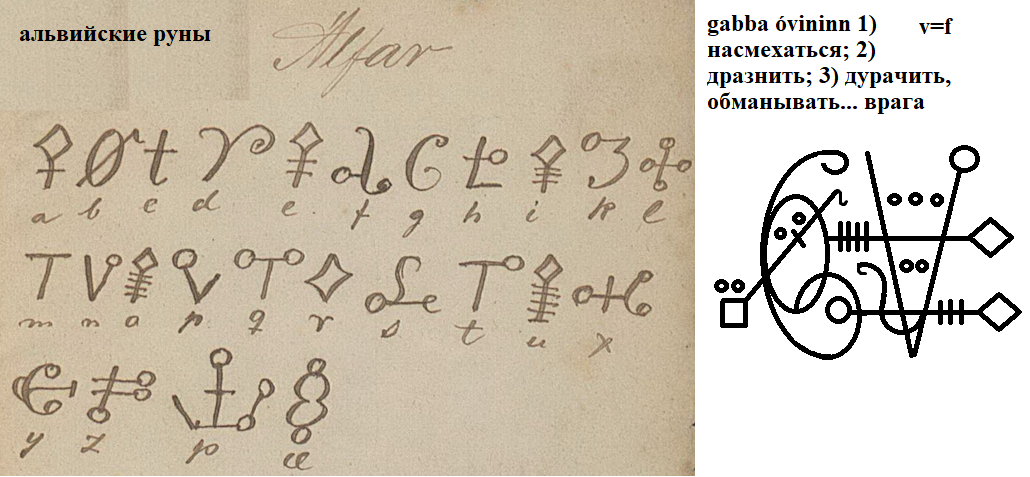 альвийские руны
Alfar
a b c d e f g h i k l
m n o p q r s t u x
y z þ æ
gabba óvininn 1) v=f
насмехаться; 2)
дразнить; 3) дурачить,
обманывать... врага